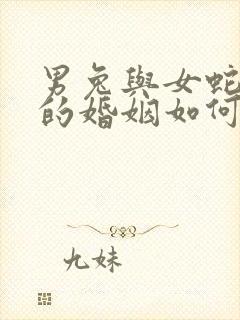 男兔與女蛇
的婚姻如何
九妹